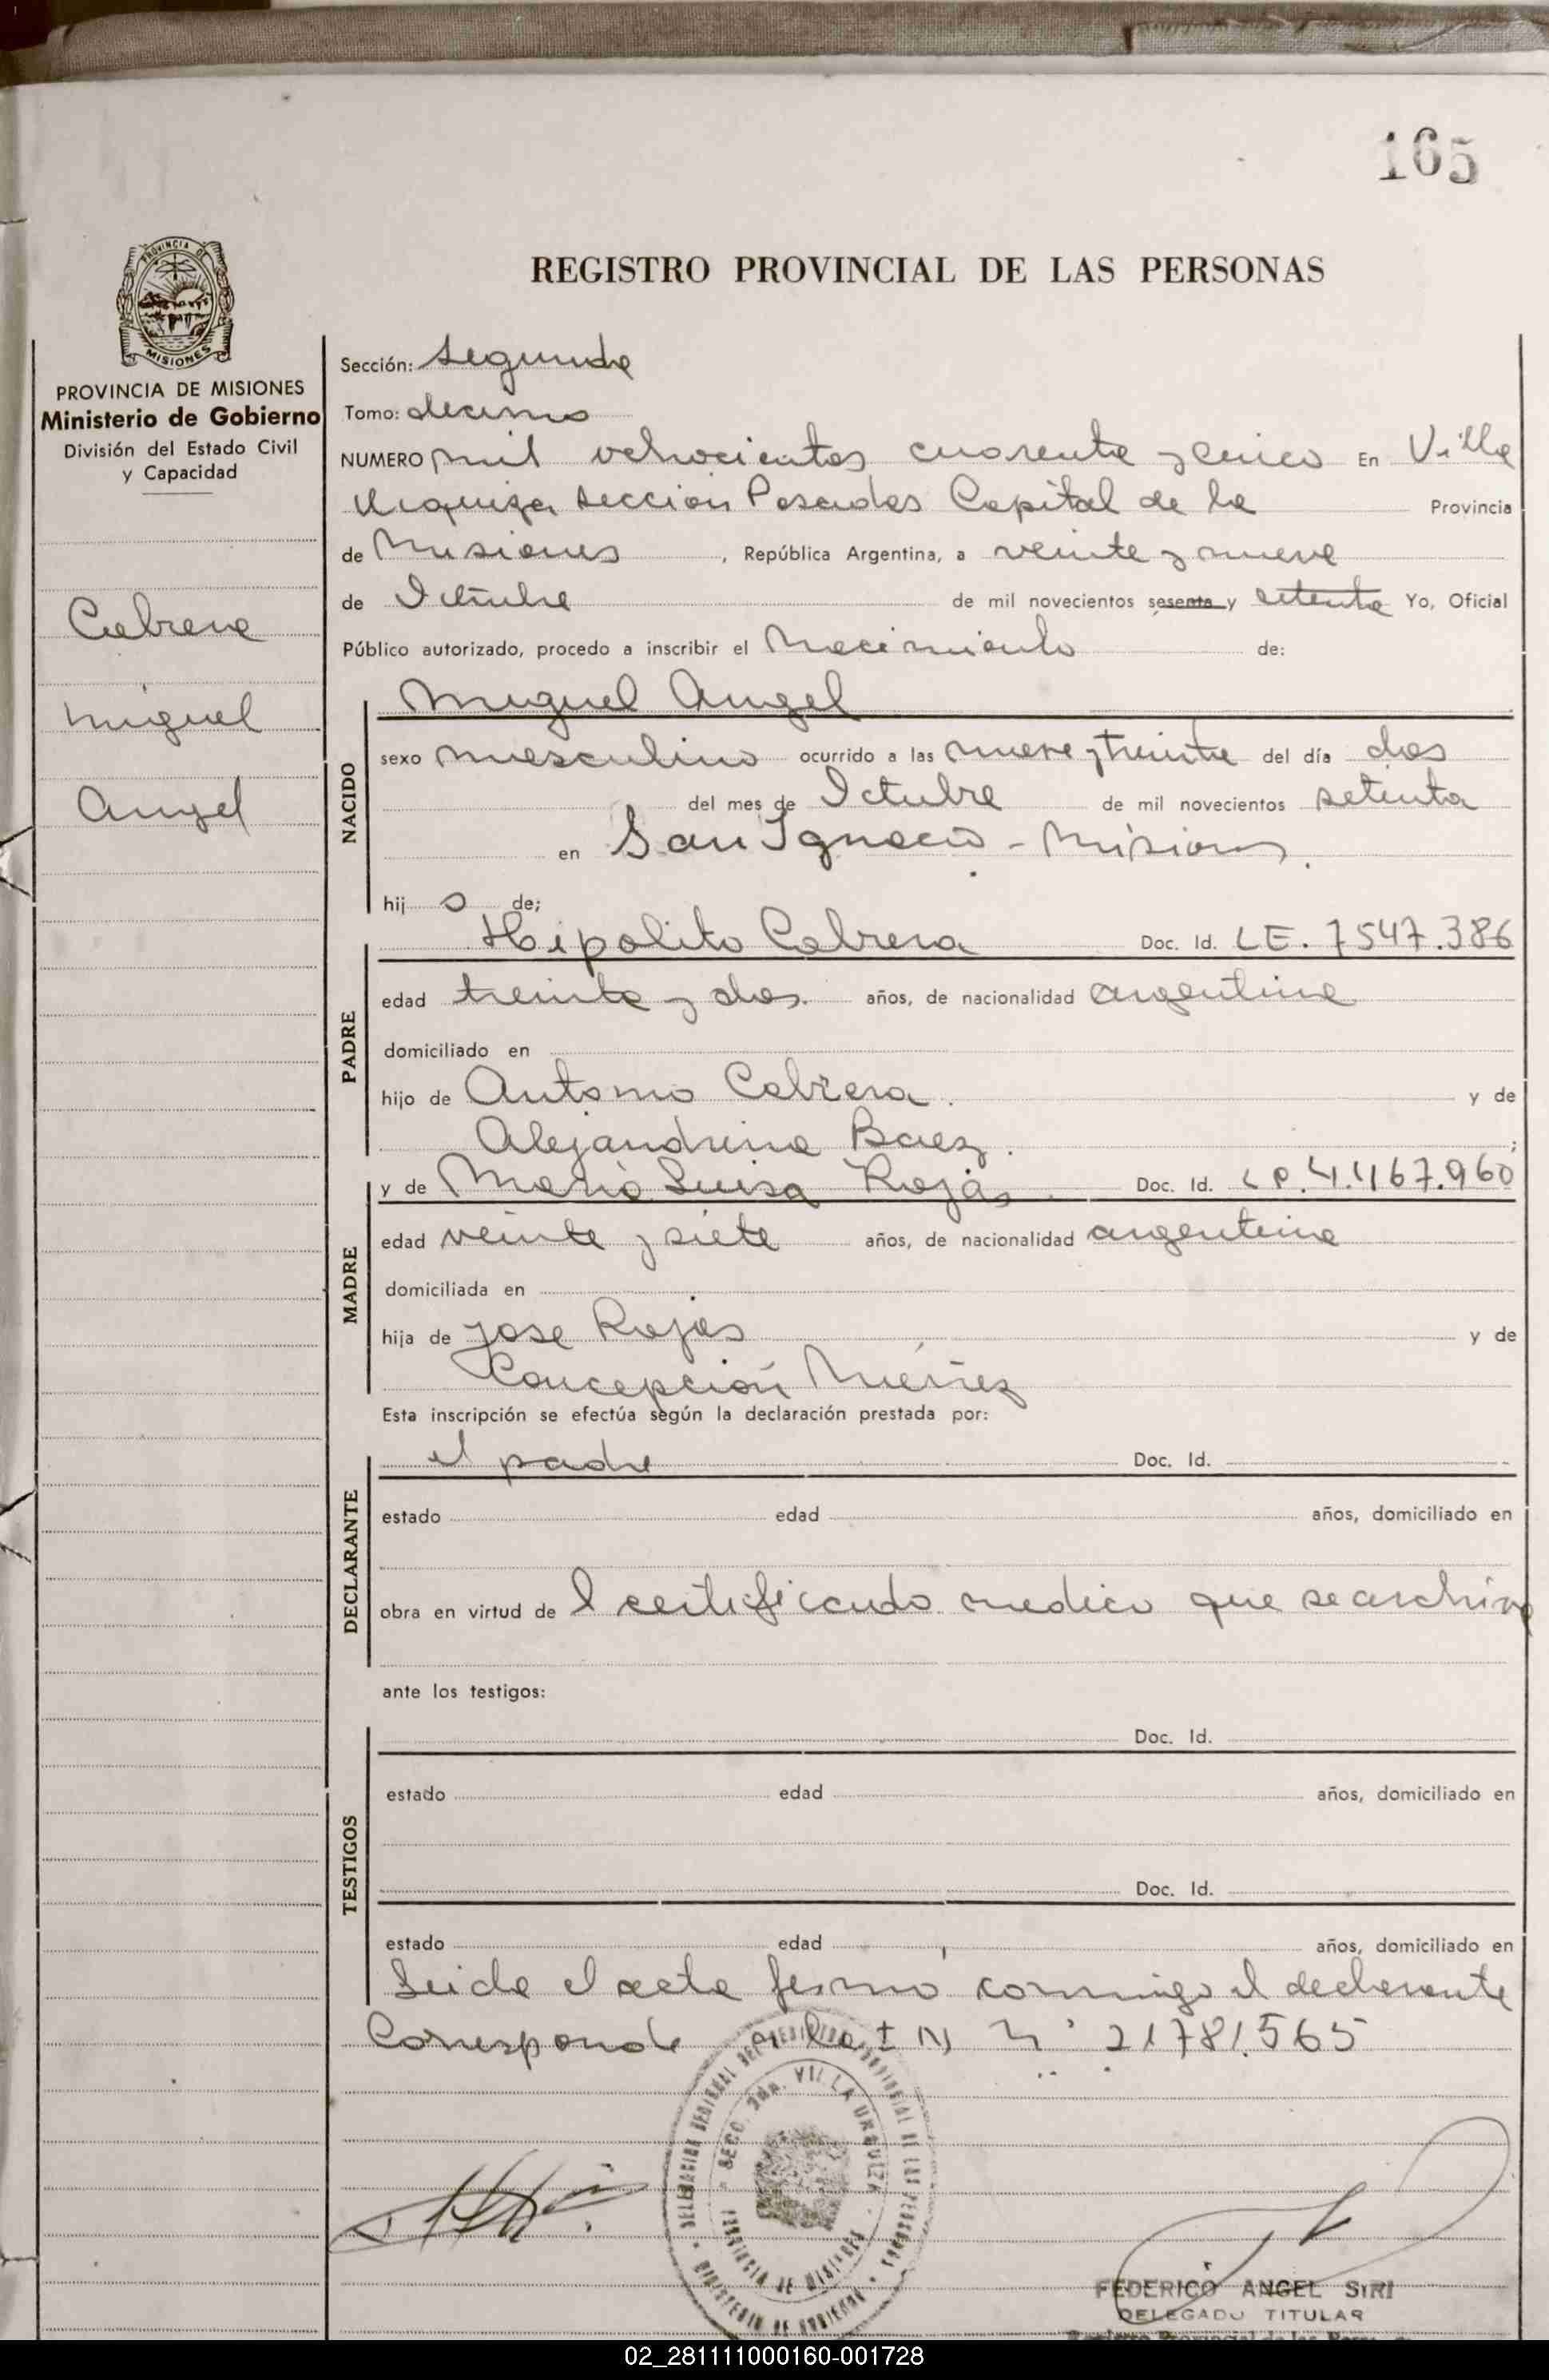 165
PROVINCIA DE
MISIONES
PROVINCIA DE MISIONES
Ministerio de Gobierno
División del Estado Civil
y Capacidad
Cabrera
Miguel
Angel
REGISTRO PROVINCIAL DE LAS PERSONAS
Sección: Segunda
Tomo: decimo
NUMERO mil ochocientos cuarenta y cinco En Villa
Urquiza seccion Posadas Capital de la Provincia
de Misiones, República Argentina, a veinte y nueve
de Octubre de mil novecientos sesenta y setenta Yo, Oficial
Público autorizado, procedo a inscribir el Nacimiento de:
NACIDO
Miguel Angel
sexo masculino ocurrido a las nueve y treinta del día dos
del mes de Octubre de mil novecientos setenta
en San Ignacio - Misiones.
hij o de;
PADRE
Hipolito Cabrera Doc. Id. L.E. 7547.386
edad treinta y dos. años, de nacionalidad argentina
domiciliado en
hijo de Antonio Cabrera. y de
Alejandrina Baez. ;
MADRE
y de Maria Luisa Rojas Doc. Id. 4.467.960
edad veinte y siete años, de nacionalidad argentina
domiciliada en
hija de Jose Rojas y de
Concepción Nuñez
Esta inscripción se efectúa según la declaración prestada por:
DECLARANTE
el padre Doc. Id.
estado edad años, domiciliado en
obra en virtud de l certificado medico que se archiva
ante los testigos:
TESTIGOS
Doc. Id.
estado edad años, domiciliado en
Doc. Id.
estado edad años, domiciliado en
Leida el acta firmó conmigo el declarante
Corresponde a la I N N° 21781.565
DELEGACION REGIONAL DEL REGISTRO PROVINCIAL DE LAS PERSONAS
MINISTERIO DE GOBIERNO
SECC. 2da. VILLA URQUIZA
PROVINCIA DE MISIONES
FEDERICO ANGEL SIRI
DELEGADO TITULAR
Registro Provincial de las Pers
02_281111000160-001728